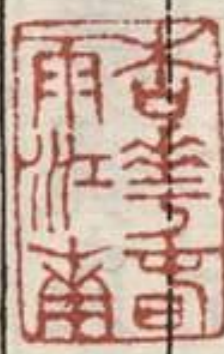 杏華春
雨江南